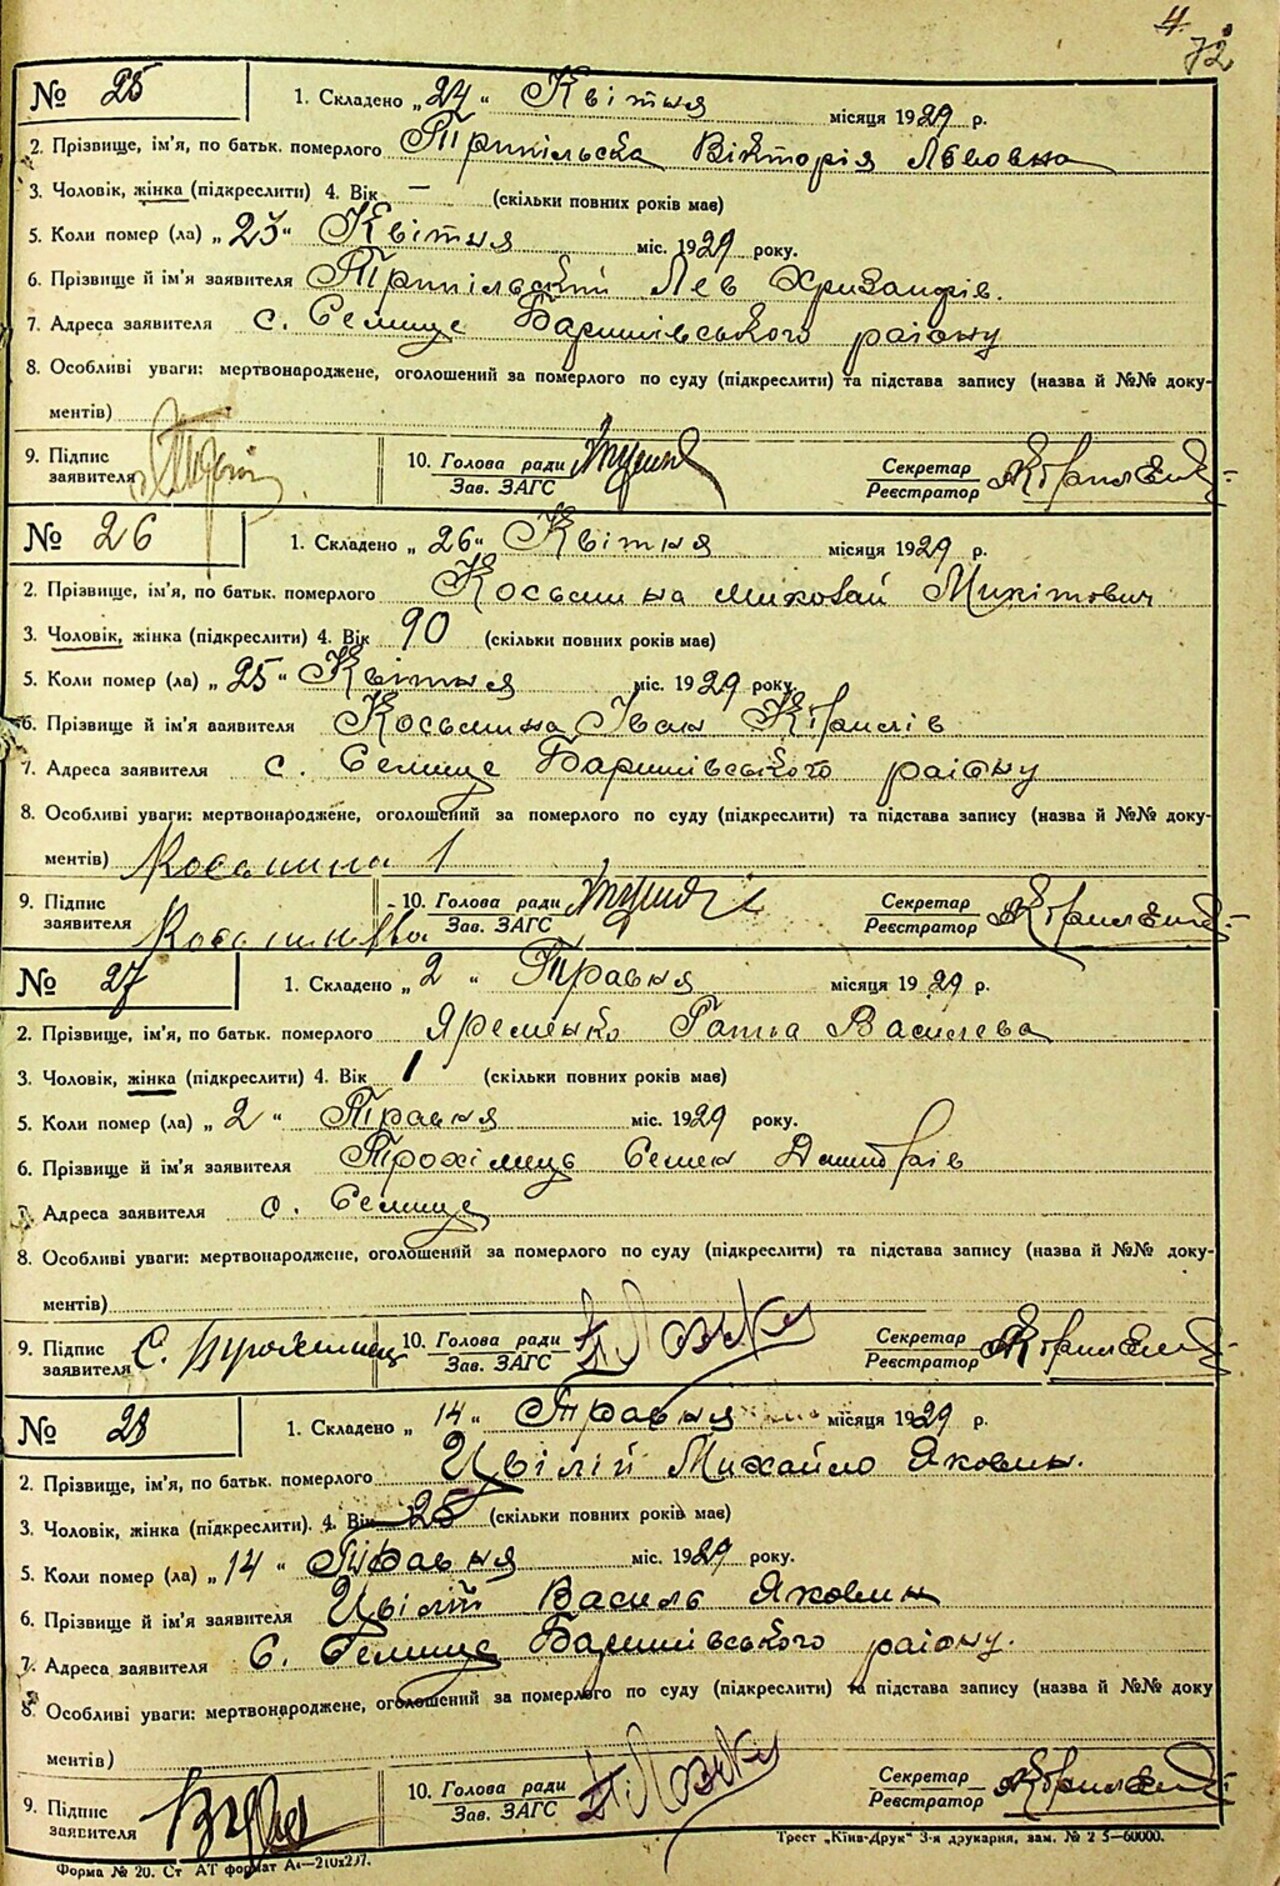 4.
72
№ 25 1. Складено „24“ Квітня місяця 1929 р.
2. Прізвище, ім'я, по батьк. померлого Трипільська Вікторія Львовна
3. Чоловік, жінка (підкреслити) 4. Вік — (скільки повних років має)
5. Коли помер (ла) „23“ Квітня міс. 1929 року.
6. Прізвище й ім'я заявителя Трипільський Лев Хризанфів.
7. Адреса заявителя с. Селище Баришівського району
8. Особливі уваги: мертвонароджене, оголошений за померлого по суду (підкреслити) та підстава запису (назва й №№ доку-
ментів)
9. Підпис заявителя 10. Голова ради Зав. ЗАГС Секретар Реєстратор
№ 26 1. Складено „26“ Квітня місяця 1929 р.
2. Прізвище, ім'я, по батьк. померлого Косьмина Миколай Микітович
3. Чоловік, жінка (підкреслити) 4. Вік 90 (скільки повних років має)
5. Коли помер (ла) „25“ Квітня міс. 1929 року.
6. Прізвище й ім'я заявителя Косьмина Іван Кірилів
7. Адреса заявителя с. Селище Баришівського району
8. Особливі уваги: мертвонароджене, оголошений за померлого по суду (підкреслити) та підстава запису (назва й №№ доку-
ментів)
9. Підпис заявителя 10. Голова ради Зав. ЗАГС Секретар Реєстратор
№ 27 1. Складено „2“ Травня місяця 1929 р.
2. Прізвище, ім'я, по батьк. померлого Яременко Ганна Василева
3. Чоловік, жінка (підкреслити) 4. Вік 1 (скільки повних років має)
5. Коли помер (ла) „2“ Травня міс. 1929 року.
6. Прізвище й ім'я заявителя Трохімець Семен
7. Адреса заявителя с. Селище
8. Особливі уваги: мертвонароджене, оголошений за померлого по суду (підкреслити) та підстава запису (назва й №№ доку-
ментів)
9. Підпис заявителя С. 10. Голова ради Зав. ЗАГС Секретар Реєстратор
№ 28 1. Складено „14“ Травня місяця 1929 р.
2. Прізвище, ім'я, по батьк. померлого Цвілій Михайло Яковин.
3. Чоловік, жінка (підкреслити). 4. Вік 25 (скільки повних років має)
5. Коли помер (ла) „14“ Травня міс. 1929 року.
6. Прізвище й ім'я заявителя Цвілій Василь Яковин
7. Адреса заявителя С. Селище Баришівського району.
8. Особливі уваги: мертвонароджене, оголошений за померлого по суду (підкреслити) та підстава запису (назва й №№ доку
ментів)
9. Підпис заявителя 10. Голова ради Зав. ЗАГС Секретар Реєстратор
Трест „Київ-Друк“ 3-я друкарня, зам. № 2 5—60000.
Форма № 20. Ст АТ формат А4—210х297.